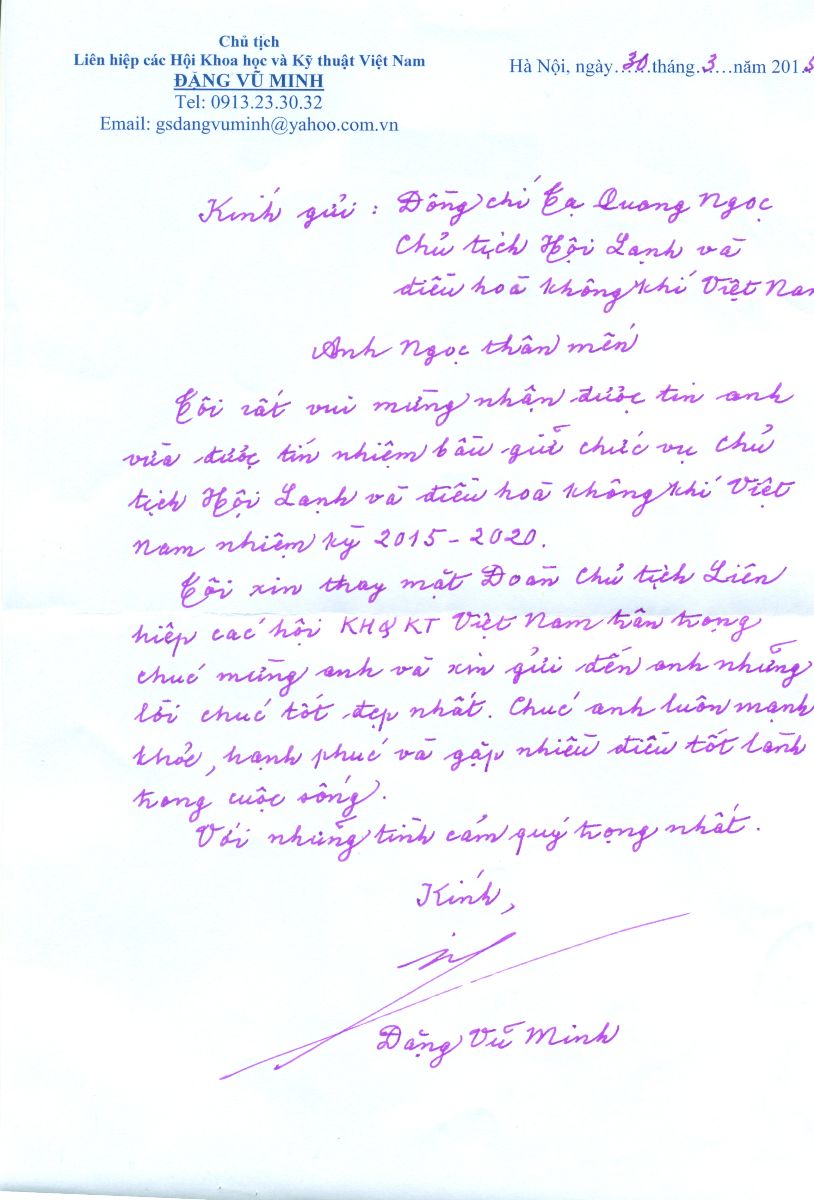 Chủ tịch
Liên hiệp các Hội Khoa học và Kỹ thuật Việt Nam
ĐẶNG VŨ MINH
Tel: 0913.23.30.32
Email: gsdangvuminh@yahoo.com.vn
Hà Nội, ngày...30...tháng..3....năm 2015
Kính gửi : Đồng chí Tạ Quang Ngọc
Chủ tịch Hội Lạnh và
điều hoà không khí Việt Nam
Anh Ngọc thân mến
Tôi rất vui mừng nhận được tin anh
vừa được tín nhiệm bầu giữ chức vụ Chủ
tịch Hội Lạnh và điều hoà không khí Việt
Nam nhiệm kỳ 2015-2020.
Tôi xin thay mặt Đoàn Chủ tịch Liên
hiệp các hội KH&KT Việt Nam trân trọng
chúc mừng anh và xin gửi đến anh những
lời chúc tốt đẹp nhất. Chúc anh luôn mạnh
khỏe, hạnh phúc và gặp nhiều điều tốt lành
trong cuộc sống.
Với những tình cảm quý trọng nhất.
Kính,
Đặng Vũ Minh